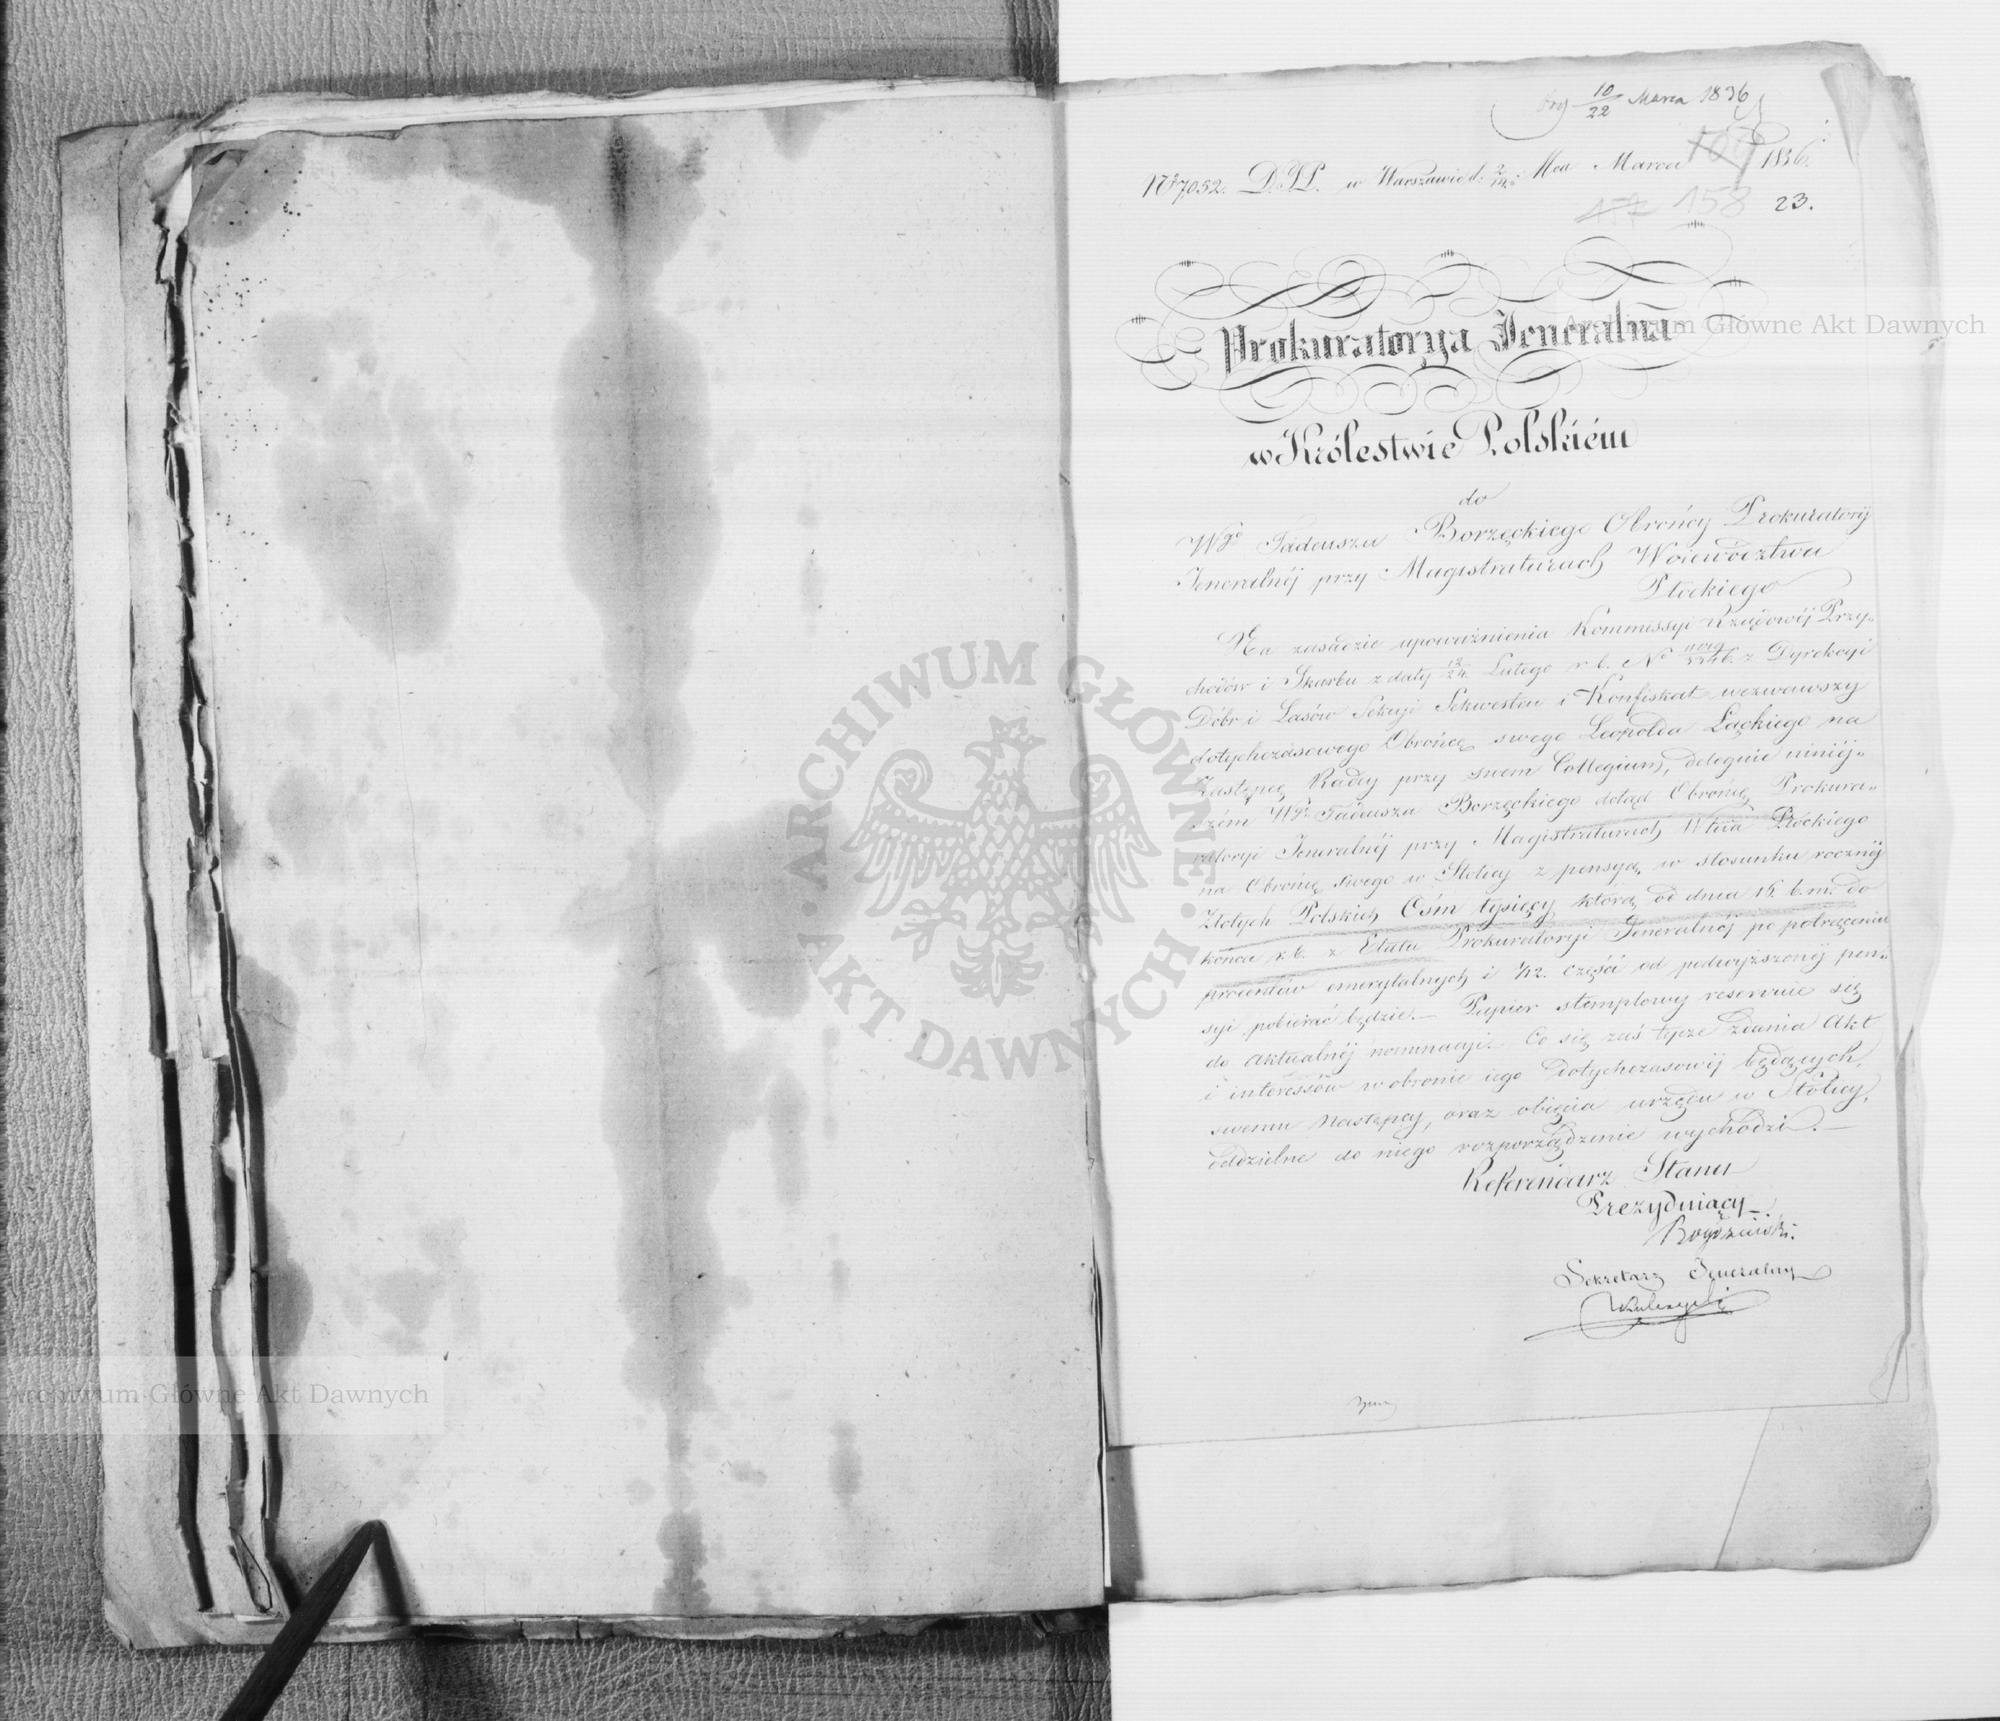 10/22 Marca 1836
109
No 7,052. D.I.P. w Warszawie d. 2/14. Mca Marca 1836.
157 158 23.
Prokuratorya Jeneralna
w Królestwie Polskiém
do
Wgo Tadeusza Borzęckiego Obrońcy Prokuratoryi
Jeneralnéj przy Magistraturach Woiewództwa
Płockiego
Na zasadzie upoważnienia Kommissyi Rządowéj Przy-
chodów i Skarbu z daty 12/24. Lutego r. b. No z Dyrekcyi
Dóbr i Lasów Sekcyi Sekwestru i Konfiskat wezwawszy
dotychczasowego Obrońcę swego Leopolda Łąckiego na
Zastępcę Radcy przy swem Collegium, deleguie niniéj-
szém Wgo Tadeusza Borzęckiego dotąd Obrońcę Prokura-
ratoryi Jeneralnéj przy Magistraturach Wtwa Płockiego
na Obrońcę swego w Stolicy z pensyą w stosunku rocznéj
Złotych Polskich Ośm tysięcy którą od dnia 16. b. m. do
końca r. b. z Etatu Prokuratoryi Jeneralnéj po potrąceniu
procentów emerytalnych i 1/12. części od podwyższonéj pen-
syi pobierać będzie. — Papier stemplowy reserwuie się
do aktualnéj nominacyi. Co się zaś tycze zdania Akt
i interessów w obronie iego dotychczasowéj będących,
swemu Następcy, oraz obięcia urzędu w Stolicy,
oddzielne do niego rozporządzenie wychodzi. —
Referendarz Stanu
Prezyduiący.
Sekretarz Jeneralny
Archiwum Główne Akt Dawnych
ARCHIWUM GŁÓWNE · AKT DAWNYCH ·
Archiwum Główne Akt Dawnych